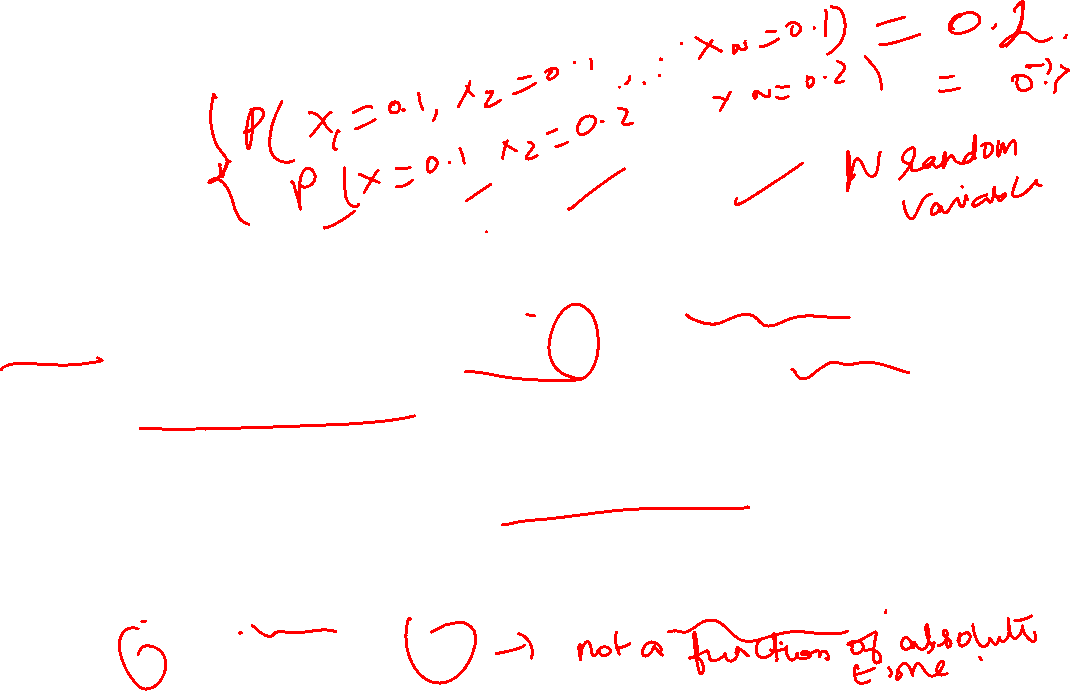 P( x₁ = 0.1, x₂ = 0.1 ..... x_N = 0.1) = 0.2.
P (x = 0.1 x₂ = 0.2 x_N = 0.2 ) =
N random
variable
→ not a function of absolute
time.